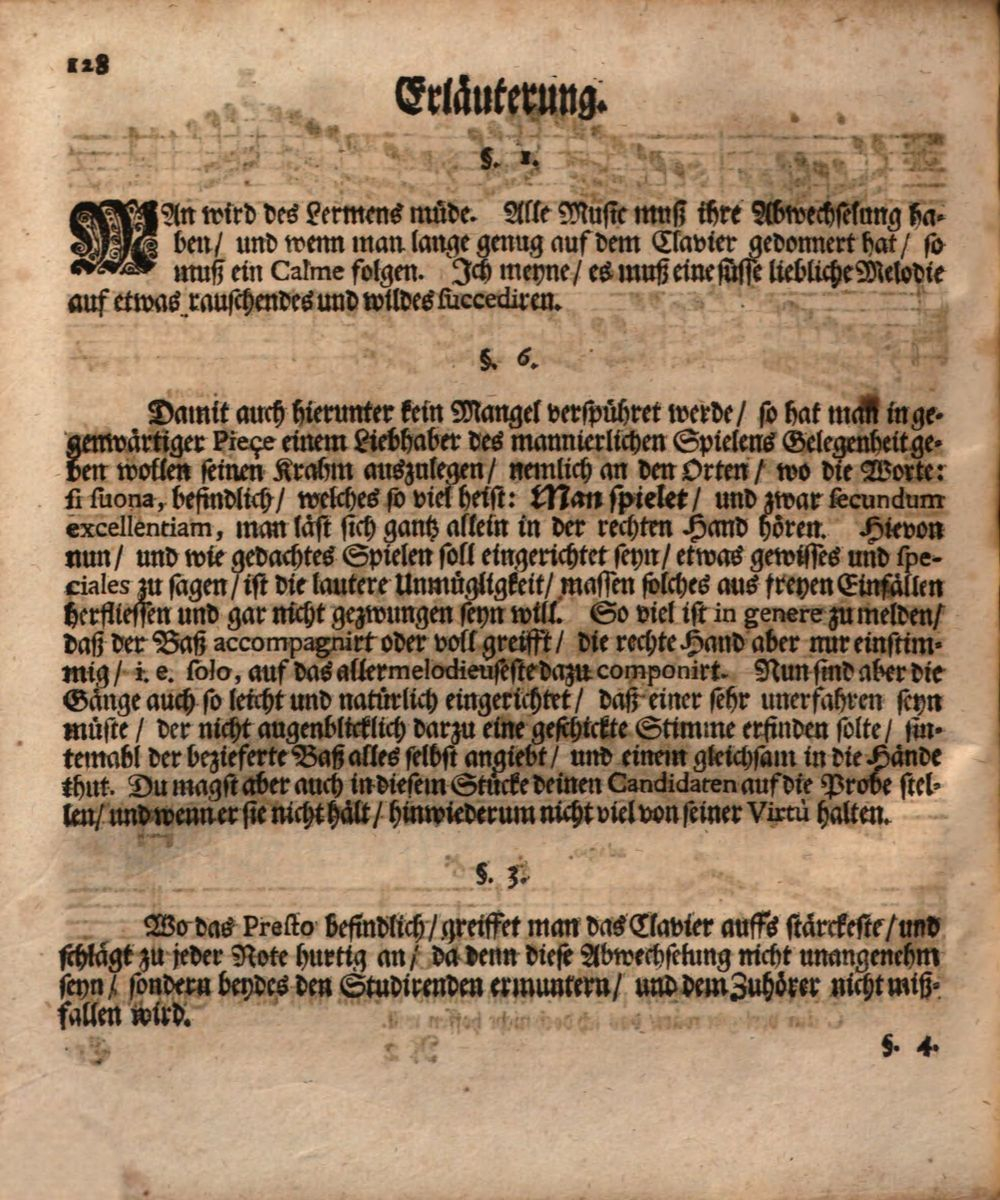 128
Erläuterung.
§. 1.
MAn wird des Lermens müde. Alle Music muß ihre Abwechselung ha-
ben/ und wenn man lange genug auf dem Clavier gedonnert hat/ so
muß ein Calme folgen. Ich meyne/ es muß eine süsse liebliche Melodie
auf etwas rauschendes und wildes succediren.
§. 6.
Damit auch hierunter kein Mangel verspühret werde/ so hat man in ge-
genwärtiger Pieçe einem Liebhaber des mannierlichen Spielens Gelegenheit ge-
ben wollen seinen Krahm auszulegen/ nemlich an den Orten/ wo die Worte:
si suona, befindlich/ welches so viel heist: Man spielet/ und zwar secundum
excellentiam, man läst sich gantz allein in der rechten Hand hören. Hievon
nun/ und wie gedachtes Spielen soll eingerichtet seyn/ etwas gewisses und spe-
ciales zu sagen/ ist die lautere Unmügligkeit/ massen solches aus freyen Einfällen
herfliessen und gar nicht gezwungen seyn will. So viel ist in genere zu melden/
daß der Baß accompagnirt oder voll greifft/ die rechte Hand aber nur einstim-
mig/ i. e. solo, auf das allermelodieuseste dazu componirt. Nun sind aber die
Gänge auch so leicht und natürlich eingerichtet/ daß einer sehr unerfahren seyn
müste/ der nicht augenblicklich darzu eine geschickte Stimme erfinden solte/ sin-
temahl der bezieferte Baß alles selbst angiebt/ und einem gleichsam in die Hände
thut. Du magst aber auch in diesem Stücke deinen Candidaten auf die Probe stel-
len/ und wenn er sie nicht hält/ hinwiederum nicht viel von seiner Virtù halten.
§. 3.
Wo das Presto befindlich/ greiffet man das Clavier auffs stärckeste/ und
schlägt zu jeder Note hurtig an/ da denn diese Abwechselung nicht unangenehm
seyn/ sondern beydes den Studirenden ermuntern/ und dem Zuhörer nicht miß-
fallen wird.
§. 4.